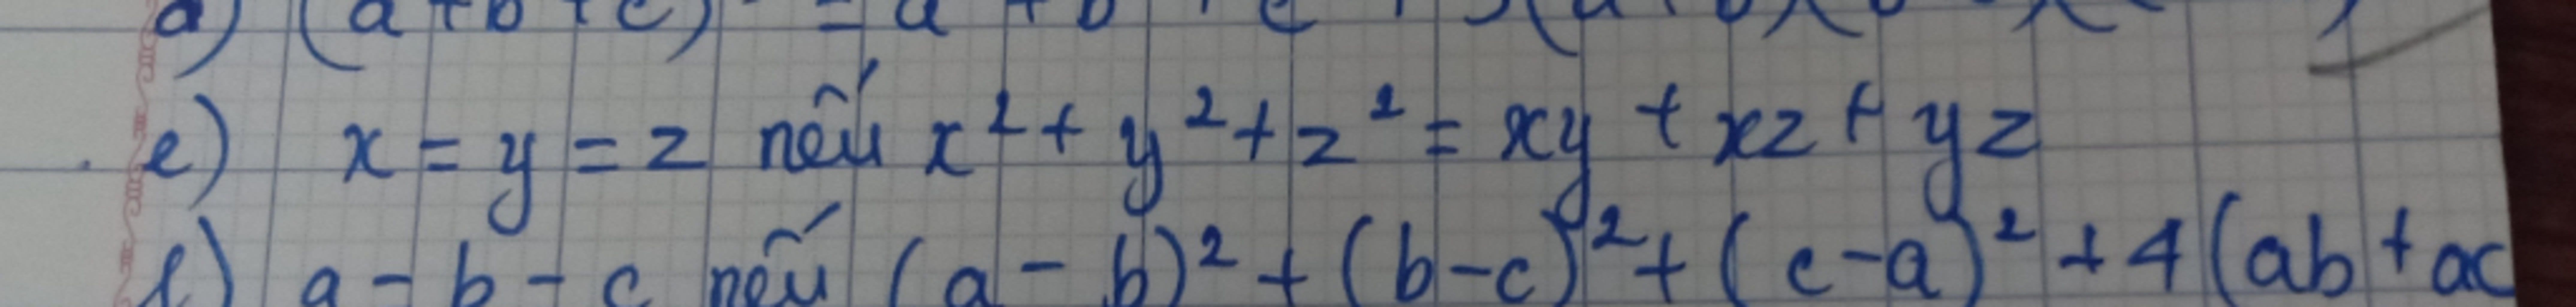 d) (a+b+c) = a + b + c + 3(a+b)(b
e) x = y = z nếu x² + y² + z² = xy + xz + yz
f) a = b = c nếu (a - b)² + (b-c)² + (c-a)² + 4(ab + ac